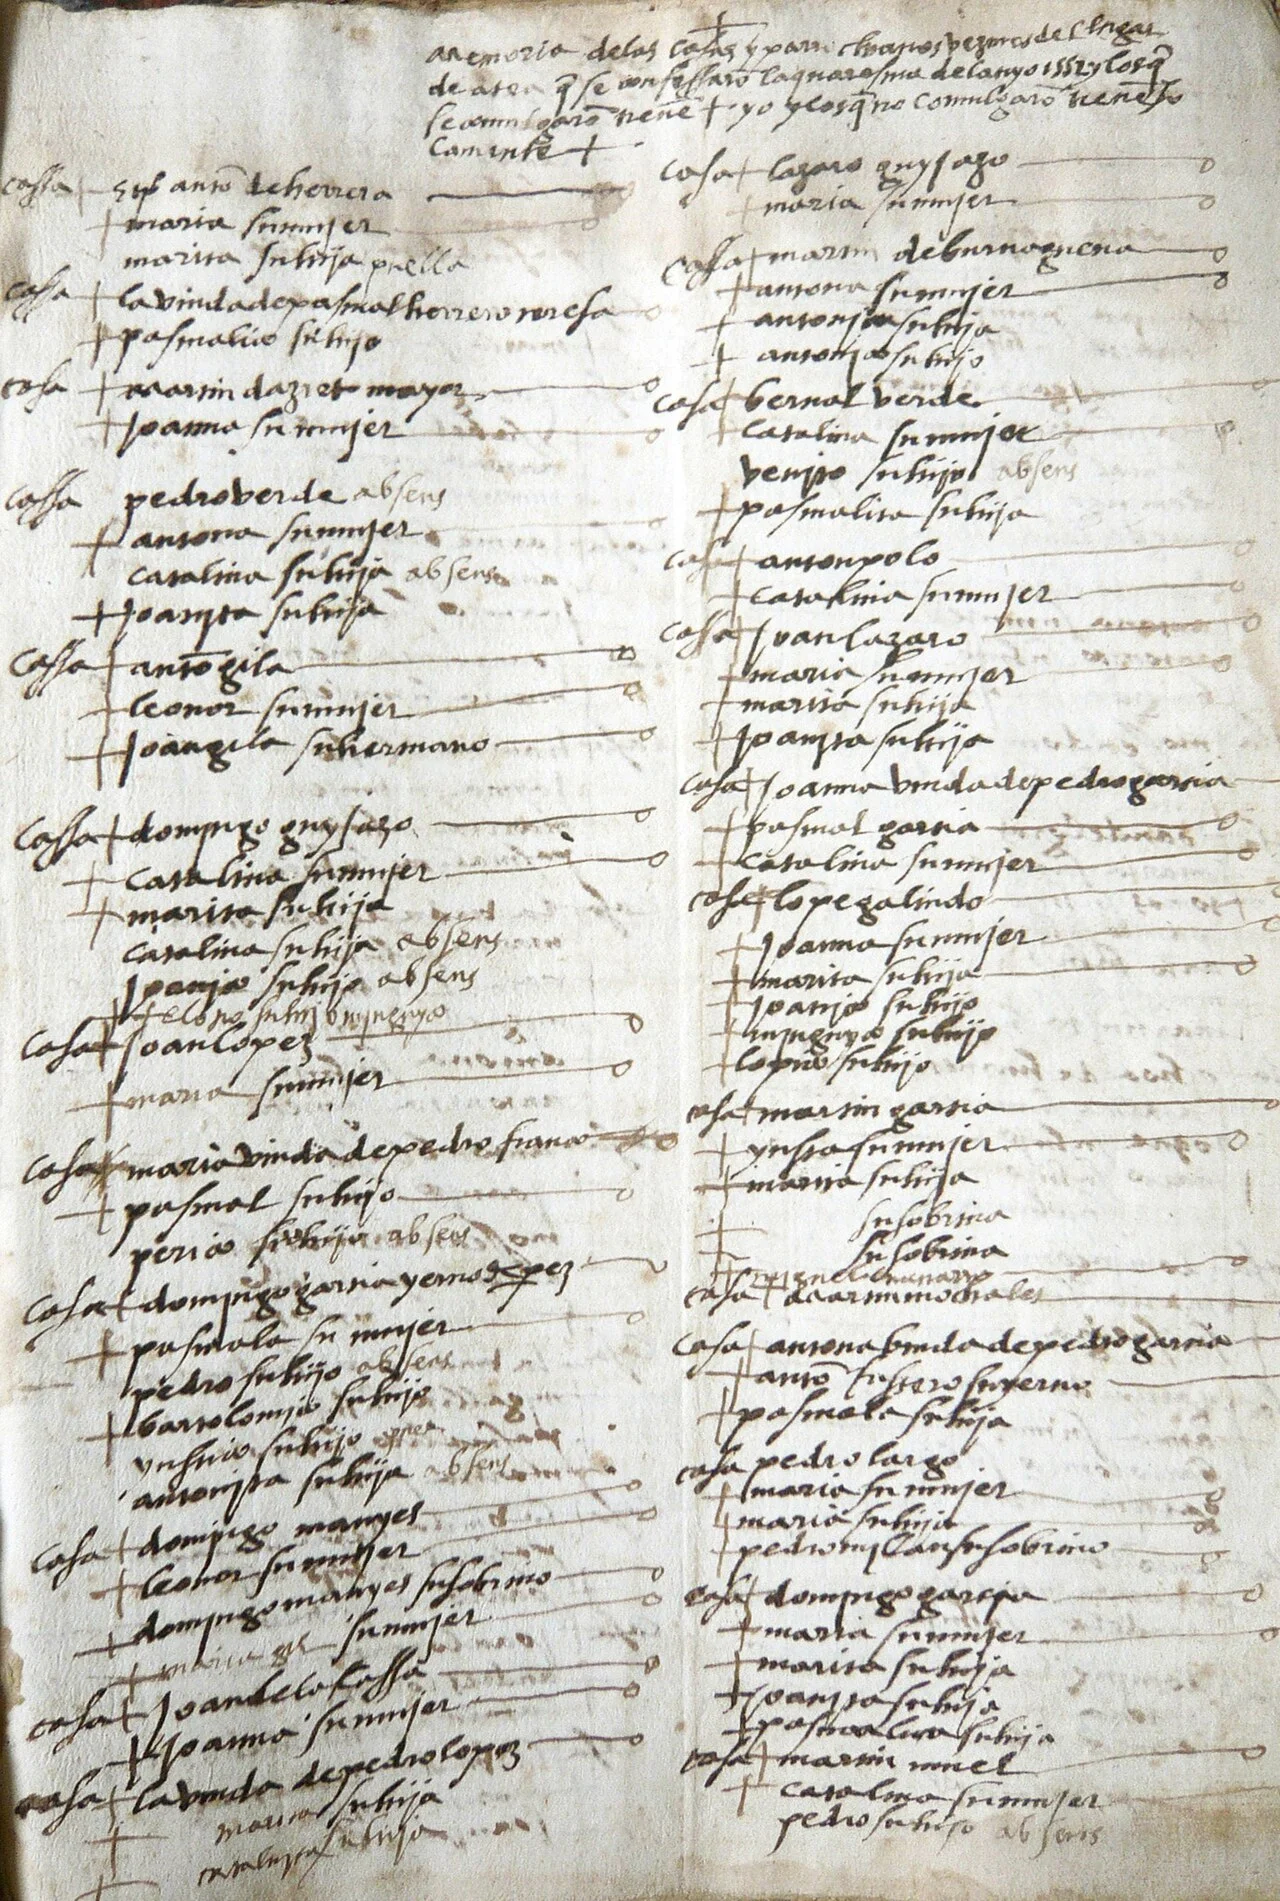 memoria delas casas y parrochianos vezinos del lugar
de atea q̃ se confessarõ la quaresma del anyo 1552 y los q̃
se comulgarõ tienẽ + yo y los q̃ no comulgarõ tienẽ
camente +
cassa + antõ de herrera
+ maria su mujer
marita su hija puella
cassa + la viuda de pasqual herrero
+ pasqualico su hijo
casa + martin dazret mayor
+ Joanna su mujer
cassa pedro verde absens
+ antona su mujer
catalina su hija absens
+ Joanyta su hija
cassa + antõ gila
+ leonor su mujer
+ Joan gila su hermano
cassa + domyngo guysazo
+ catalina su mujer
+ marita su hija
catalina su hija absens
Joanjco su hijo absens
casa + Joan lopez
+ maria su mujer
casa + maria viuda de pedro franco
+ pasqual su hijo
perico su hijo absens
casa + domyngo garcia yerno
+ pasquala su mujer
pedro su hijo absens
+ bartolomjco su hijo
su hijo
antonyta su hija absens
casa + domjngo manyes
+ leonor su mujer
+ domjngo manyes su sobrino
+ maria su mujer
casa + Joan de la cassa
+ Joanna su mujer
casa + la viuda de pedro lopez
+ marica su hija
+ catalnyca su hija
casa + lazaro guysazo
+ maria su mujer
cassa + martin de burnaguena
+ antona su mujer
+ antonjca su hija
+ antonjco su hijo
casa + bernal verde
+ catalina su mujer
venjto su hijo absens
+ pasqualita su hija
casa + anton polo
+ catalina su mujer
casa + Joan lazaro
+ maria su mujer
+ marita su hija
+ Joanyta su hija
casa + Joanna viuda de pedro garcia
+ pasqual garcia
+ catalina su mujer
casa + lope galindo
+ Joanna su mujer
+ marita su hija
+ Joanjco su hijo
+ su hijo
+ lopico su hijo
casa + martin garcia
+ yusta su mujer
+ marita su hija
+ su sobrina
+ su sobrina
+ miguel
casa + martin morales
casa + antona biuda de pedro garcia
+ antõ su yerno
+ pasquala su hija
casa pedro largo
+ maria su mujer
+ maria su hija
+ pedro mylan su sobrino
casa + domjngo garcia
+ maria su mujer
+ marita su hija
+ Joanyta su hija
+ pasqualica su hija
casa + martin
+ catalina su mujer
pedro su hijo absens